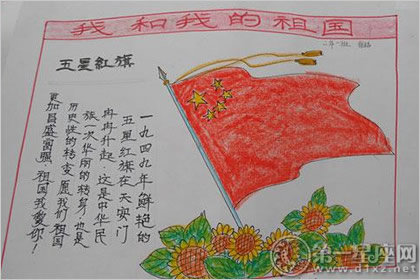 我和我的祖国
二年一班
五星红旗
一九四九年鲜艳的
五星红旗在天安门
冉冉升起 这是中华民
族一次华丽的转身,也是
历史性的转变 愿我们祖国
更加昌盛富强 祖国我爱你!
第一星座网
www.d1xz.net